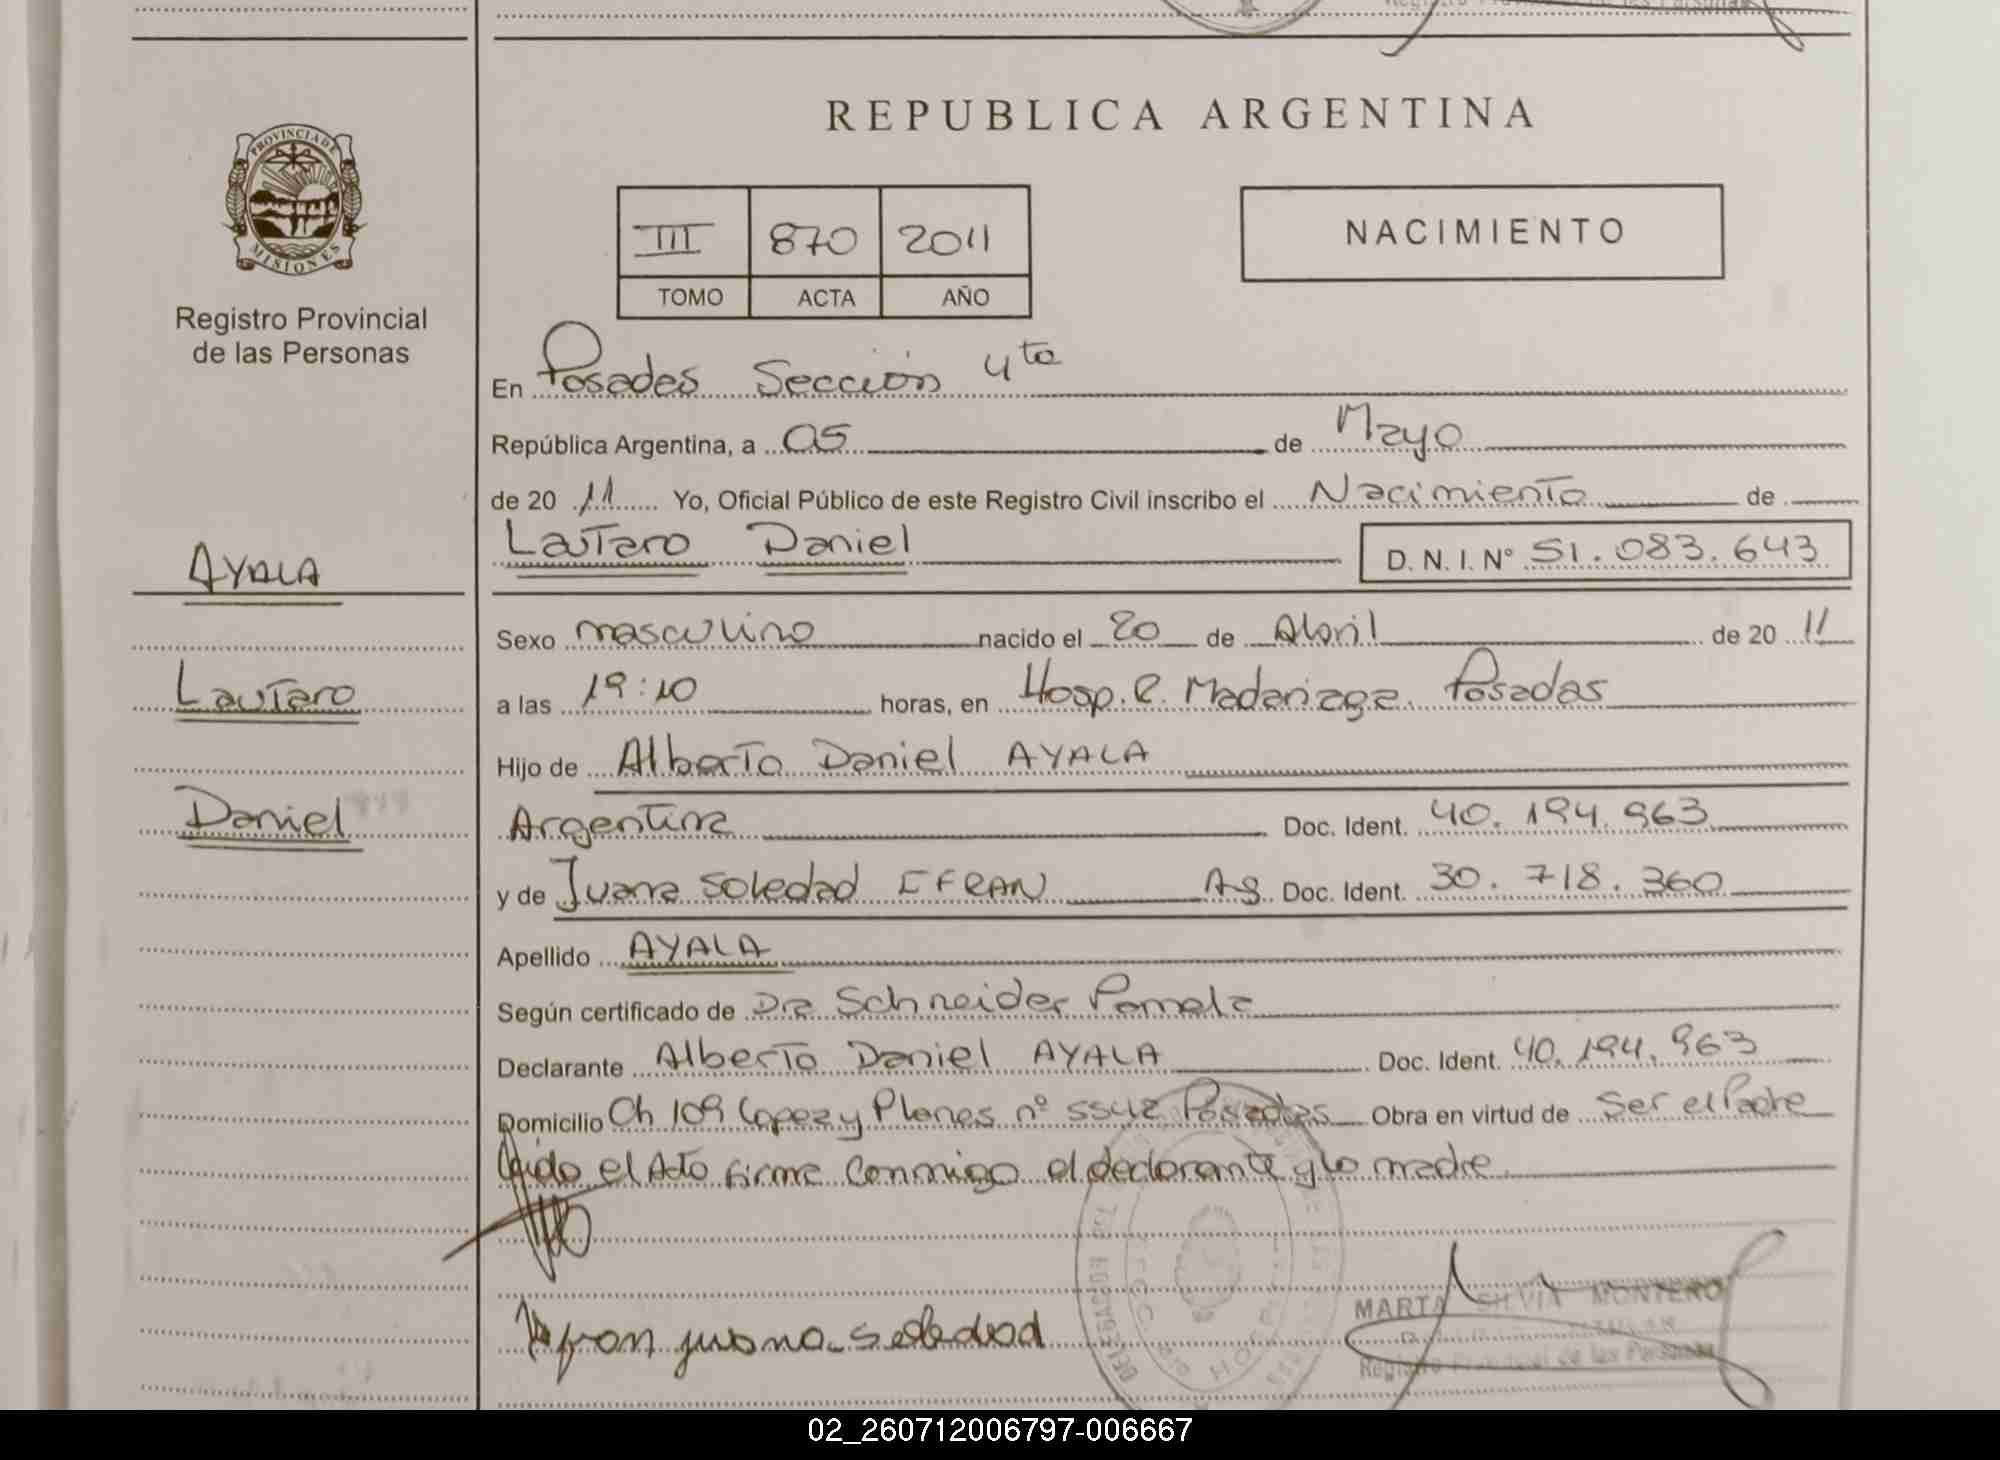 PROVINCIA DE
MISIONES
Registro Provincial
de las Personas
AYALA
Lautaro
Daniel
REPUBLICA ARGENTINA
III 870 2011
TOMO ACTA AÑO
NACIMIENTO
En Posadas Sección 4ta
República Argentina, a 05 de Mayo
de 20 11 Yo, Oficial Público de este Registro Civil inscribo el Nacimiento de
Lautaro Daniel D. N. I. N° 51.083.643
Sexo masculino nacido el 20 de Abril de 20 11
a las 19:10 horas, en Hosp. R. Madariaga. Posadas
Hijo de Alberto Daniel AYALA
Argentina Doc. Ident. 40.194.963
y de Juana Soledad IFRAN Ag. Doc. Ident. 30.718.360
Apellido AYALA
Según certificado de Dra Schneider Pamela
Declarante Alberto Daniel AYALA Doc. Ident. 40.194.963
Domicilio Ch 109 Lopez y Planes n° 5542 Posadas Obra en virtud de Ser el Padre
Leído el Acto firma conmigo el declarante y la madre
Yfran juana soledad
MARTA SILVIA MONTERO
Registro Provincial de las Personas
02_260712006797-006667